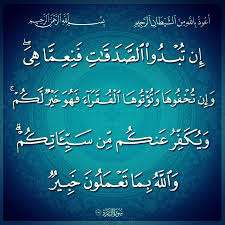 أعوذ بالله من الشيطان الرجيم بسم الله الرحمن الرحيم
إِن تُبْدُوا۟ ٱلصَّدَقَٰتِ فَنِعِمَّا هِىَ ۖ
وَإِن تُخْفُوهَا وَتُؤْتُوهَا ٱلْفُقَرَآءَ فَهُوَ خَيْرٌ لَّكُمْ ۚ
وَيُكَفِّرُ عَنكُم مِّن سَيِّـَٔاتِكُمْ ۗ
وَٱللَّهُ بِمَا تَعْمَلُونَ خَبِيرٌ
سورة البقرة